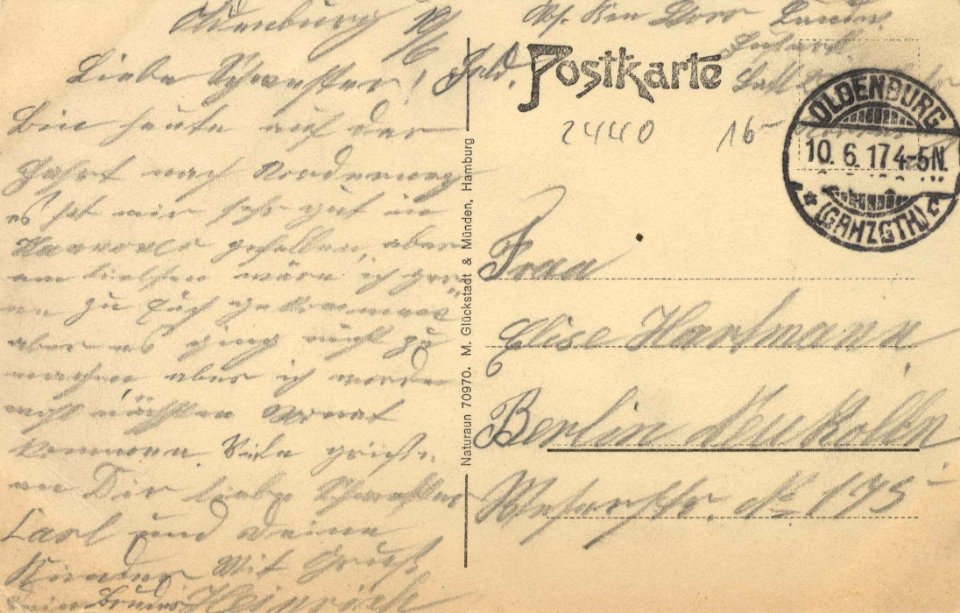 Oldenburg 10/6
Liebe Schwester!
Bin heute auf der
Fahrt nach Norderney
es hat mir sehr gut in
Hannover gefallen, aber
am liebsten wäre ich ger
zu Euch gekommen
aber es ging nicht zu
machen aber ich werde
nächsten Monat
kommen. Viele grüße
an Dir liebe Schwester
Carl und deine
Kinder Mit Gruß
dein Bruder Heinrich
Feld. Postkarte
24440 15
OLDENBURG
10. 6. 17 4-5N.
(GRHZGTH.)
Naturaun 70970. M. Glückstadt & Münden, Hamburg
Frau
Elise Hartmann
Berlin Neukölln
Weserstr. No 175